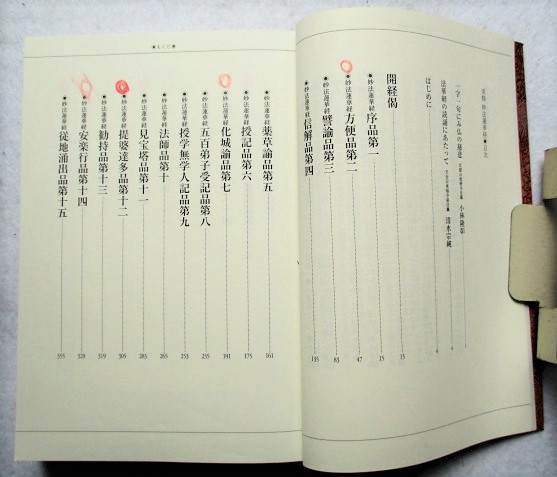 目次
一字一句にみ仏の慈悲 小林隆彰
法華経の読誦にあたって 清水宗純
はじめに
開経偈 13
妙法蓮華経 序品第一 15
妙法蓮華経 方便品第二 47
妙法蓮華経 譬諭品第三 83
妙法蓮華経 信解品第四 135
もくじ
妙法蓮華経 薬草諭品第五 161
妙法蓮華経 授記品第六 175
妙法蓮華経 化城諭品第七 191
妙法蓮華経 五百弟子受記品第八 235
妙法蓮華経 授学無学人記品第九 253
妙法蓮華経 法師品第十 265
妙法蓮華経 見宝塔品第十一 283
妙法蓮華経 提婆達多品第十二 305
妙法蓮華経 勧持品第十三 319
妙法蓮華経 安楽行品第十四 329
妙法蓮華経 従地涌出品第十五 355